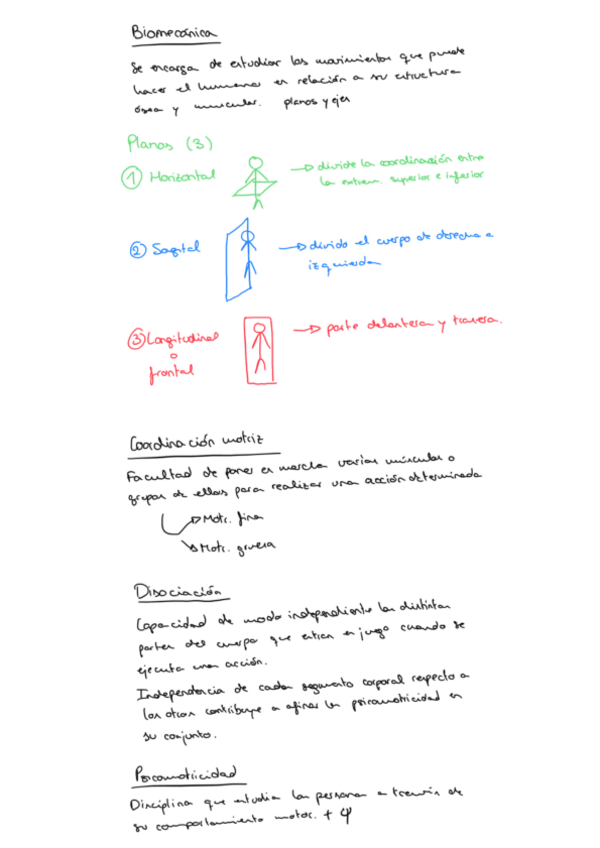 Biomecánica
Se encarga de estudiar los movimientos que puede
hacer el humano en relación a su estructura
ósea y muscular. planos y ejes
Planos (3)
① Horizontal → divide la coordinación entre
la extrem. superior e inferior
② Sagital → divido el cuerpo de derecha a
izquierda
③ Longitudinal → parte delantera y trasera.
o
frontal
Coordinación motriz
Facultad de poner en marcha varios músculos o
grupos de ellos para realizar una acción determinada
→ Motr. fina
→ Motr. gruesa
Disociación
Capacidad de modo independiente las distintas
partes del cuerpo que entran en juego cuando se
ejecuta una acción.
Independencia de cada segmento corporal respecto a
los otros contribuye a afinar la psicomotricidad en
su conjunto.
Psicomotricidad
Disciplina que estudia las personas a través de
su comportamiento motor. + Ψ